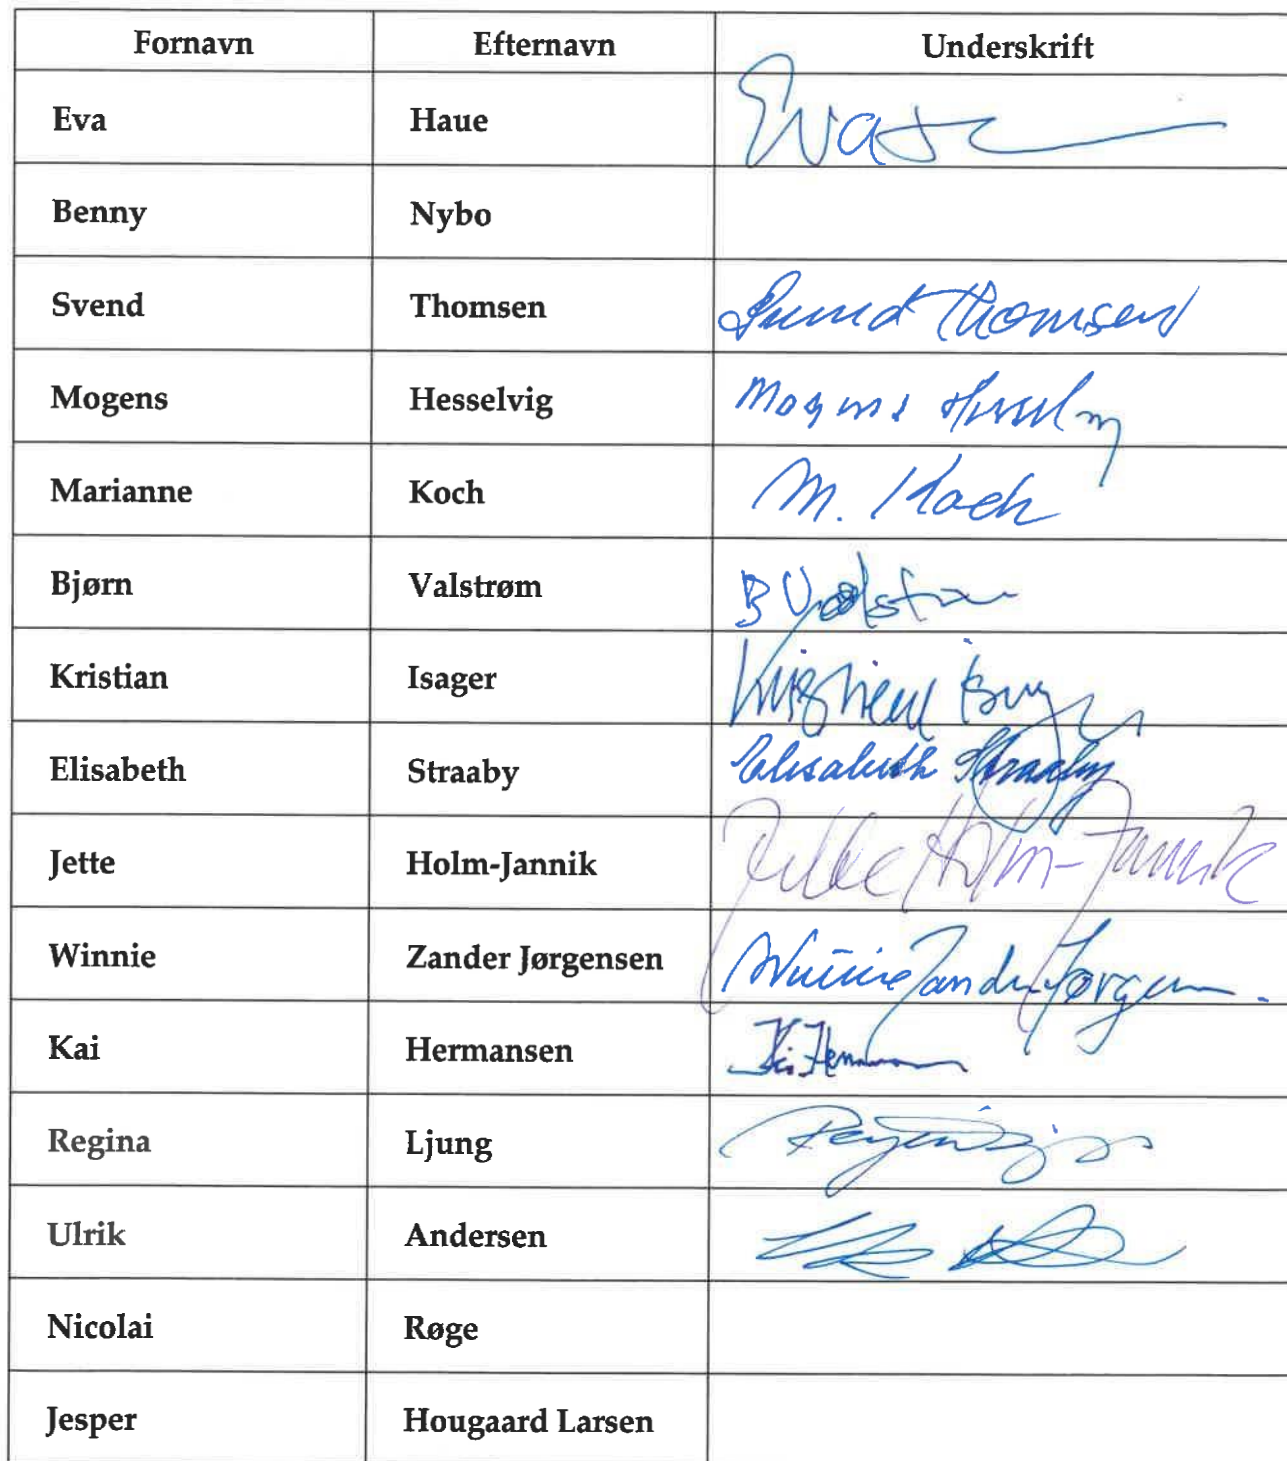 Fornavn Efternavn Underskrift
Eva Haue Eva
Benny Nybo
Svend Thomsen Svend Thomsen
Mogens Hesselvig Mogens
Marianne Koch M. Koch
Bjørn Valstrøm B Valstrøm
Kristian Isager Kristian
Elisabeth Straaby Elisabeth Straaby
Jette Holm-Jannik Jette Holm-Jannik
Winnie Zander Jørgensen Winnie Zander
Kai Hermansen Kai
Regina Ljung
Ulrik Andersen
Nicolai Røge
Jesper Hougaard Larsen